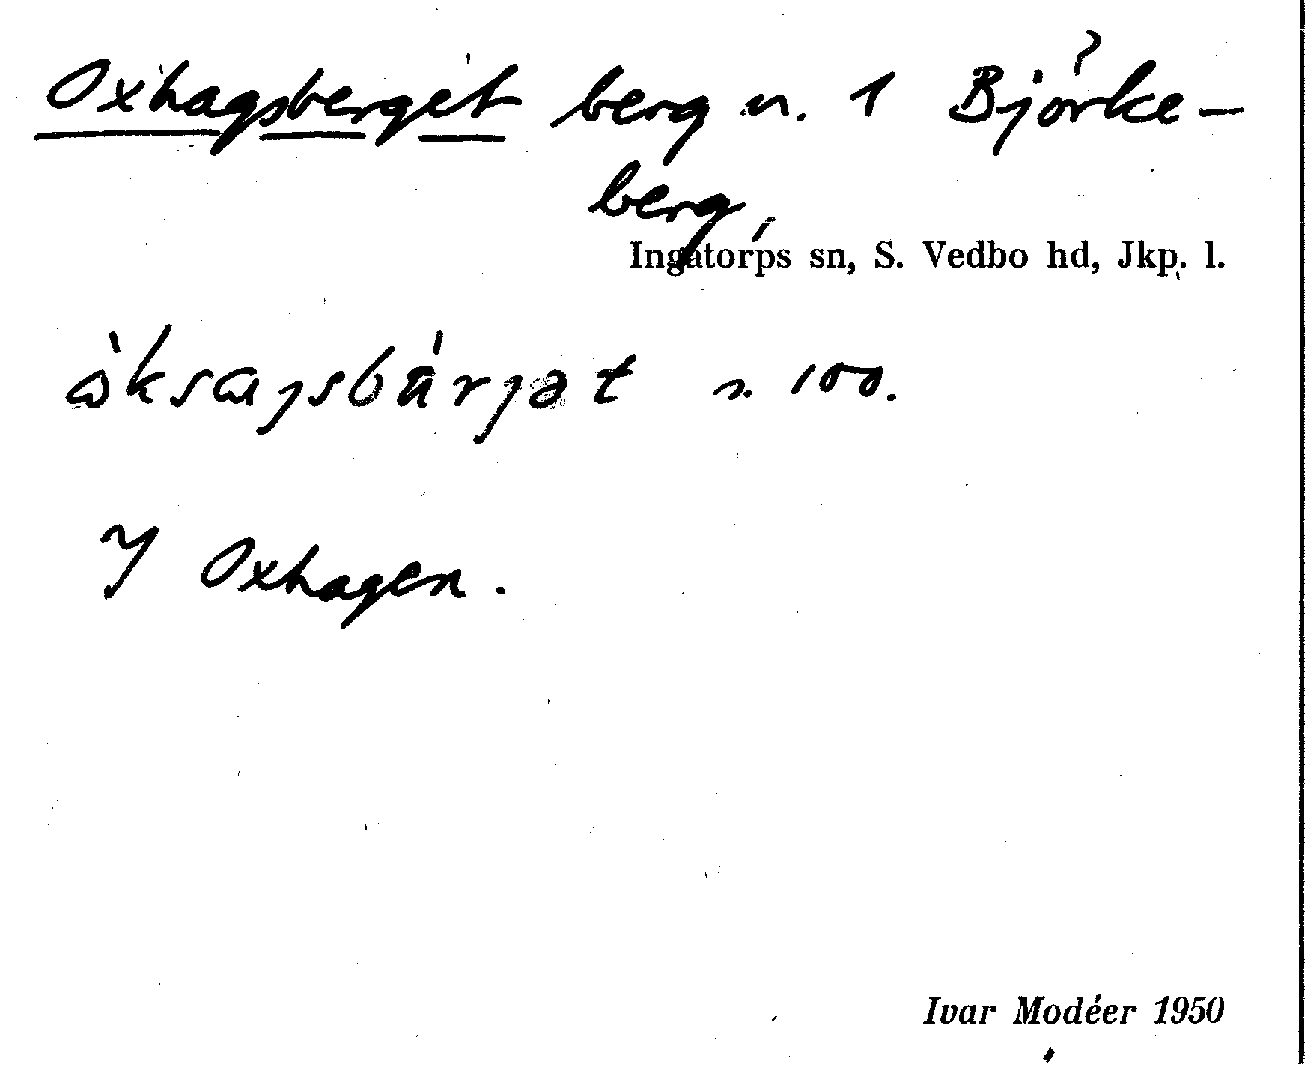 Oxhagsberget berg n. 1 Björke-
berg,
Ingatorps sn, S. Vedbo hd, Jkp. l.
n. 100.
I Oxhagen.
Ivar Modéer 1950